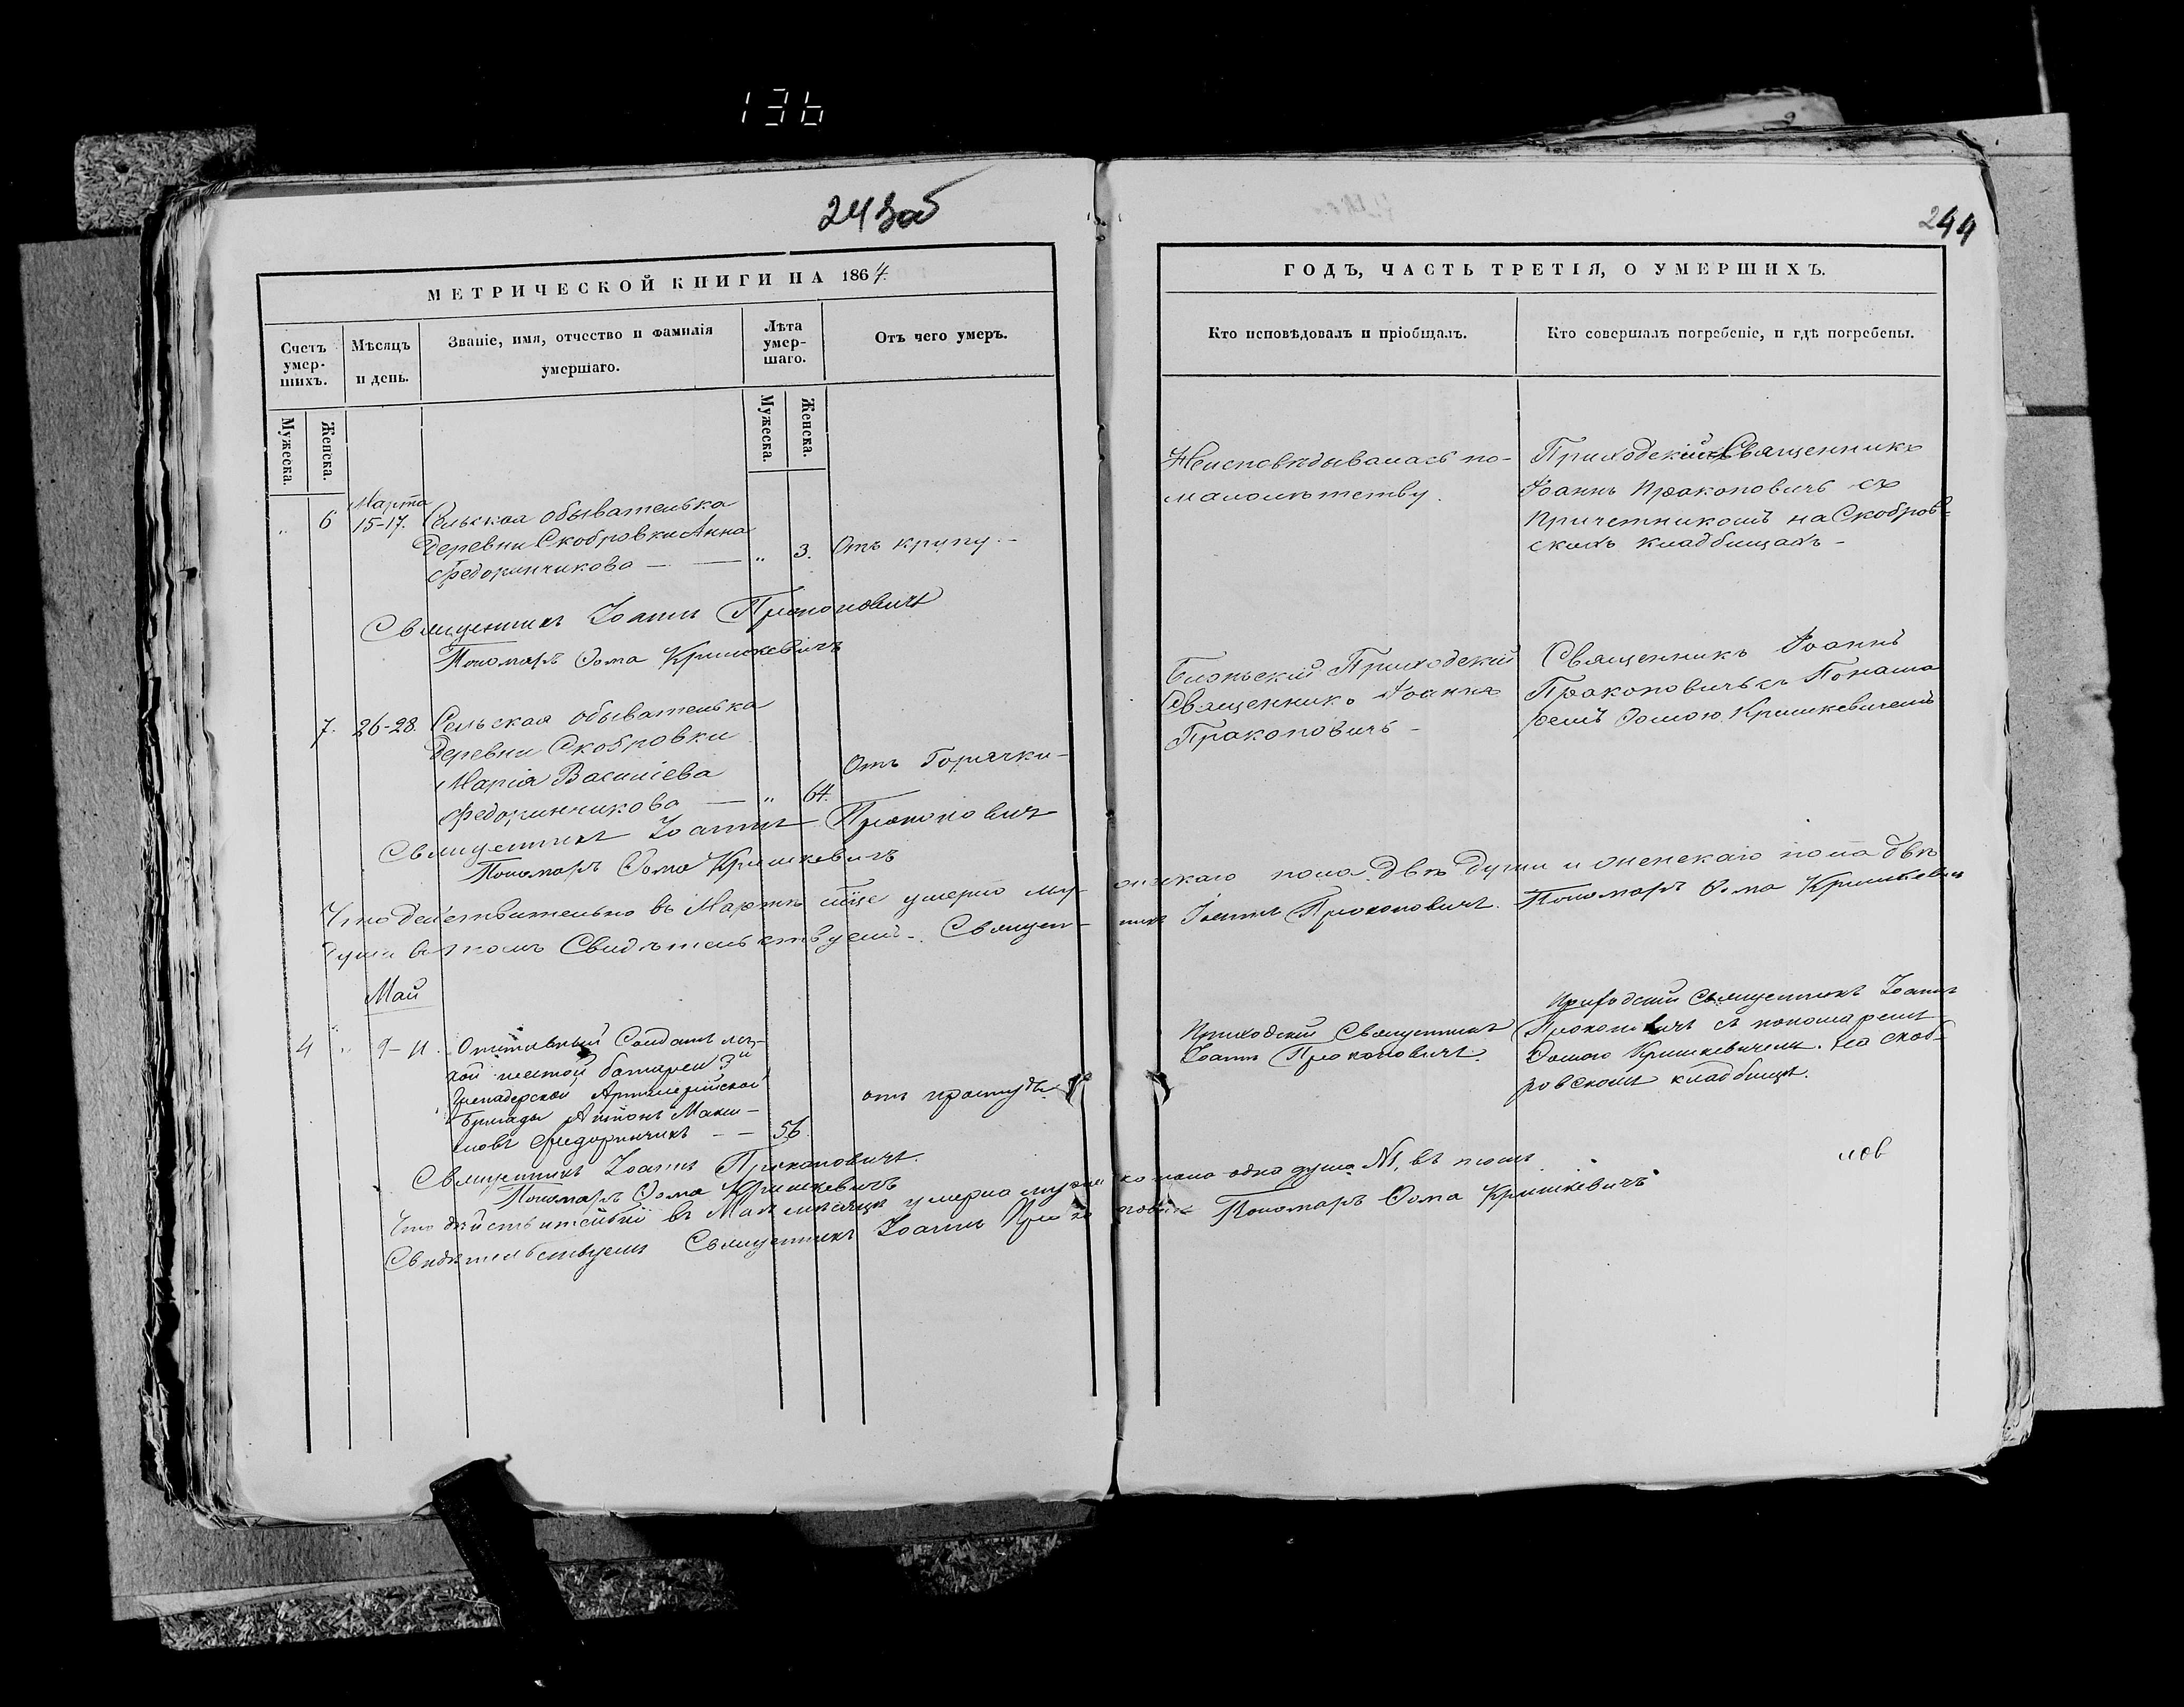 136
243об
МЕТРИЧЕСКОЙ КНИГИ НА 1864
Счетъ умер-шихъ.
Мѣсяцъ и день.
Званіе, имя, отчество и фамилія умершаго.
Лѣта умер-шаго.
Отъ чего умеръ.
Мужеска.
Женска.
Мужеска.
Женска.
Марта
6 15-17. Сельская обывателька
деревни Скобровки Анна
Федоринчикова — — „ 3. Отъ крупу. -
Священникъ Іоаннъ Прокоповичъ
Пономарь Ѳома Кришкевичъ
7. 26-28. Сельская обывателька
деревни Скобровки
Марія Василіева
Федоринчикова — „ 64. Отъ Горячки -
Священникъ Іоаннъ Прокоповичъ
Пономарь Ѳома Кришкевичъ
Что действительно въ Мартѣ умерло му-
души въ томъ Свидѣтельствуемъ. Священ-
Май
4 „ 9-11. Отставный Солдатъ лег-
кой шестой батареи 3й
Гренадерской Артилерийской
Бригады Антонъ Макси-
мовъ Федоринчикъ - - 56. отъ простуды
Священникъ Іоаннъ Прокоповичъ.
Пономарь Ѳома Кришкевичъ
Что въ Маѣ месяцѣ умерла муже
Свидѣтельствуемъ Священникъ Іоаннъ Проко
244
ГОДЪ, ЧАСТЬ ТРЕТІЯ, О УМЕРШИХЪ.
Кто исповѣдовалъ и пріобщалъ.
Кто совершалъ погребеніе, и гдѣ погребены.
Неисповѣдывалась по-
малолѣтству.
Приходскій Священникъ
Іоаннъ Прокоповичъ съ
Причетникомъ на Скобров-
скихъ кладбищахъ -
Приходскій
Священникъ Іоаннъ
Пракоповичъ -
Священникъ Іоаннъ
Пракоповичъ съ Понама
ремъ Ѳомою Кришкевичемъ
жескаго пола двѣ души и женскаго пола двѣ
никъ Іоаннъ Прокоповичъ. Пономарь Ѳома Кришкевич
Приходскій Священникъ
Іоаннъ Прокоповичъ.
Приходскій Священникъ Іоаннъ
Прокоповичъ съ пономаремъ
Ѳомою Кришкевичемъ. на скоб-
ровскомъ кладбище.
ко пола одна душа №1, въ томъ
повичъ Пономарь Ѳома Кришкевичъ